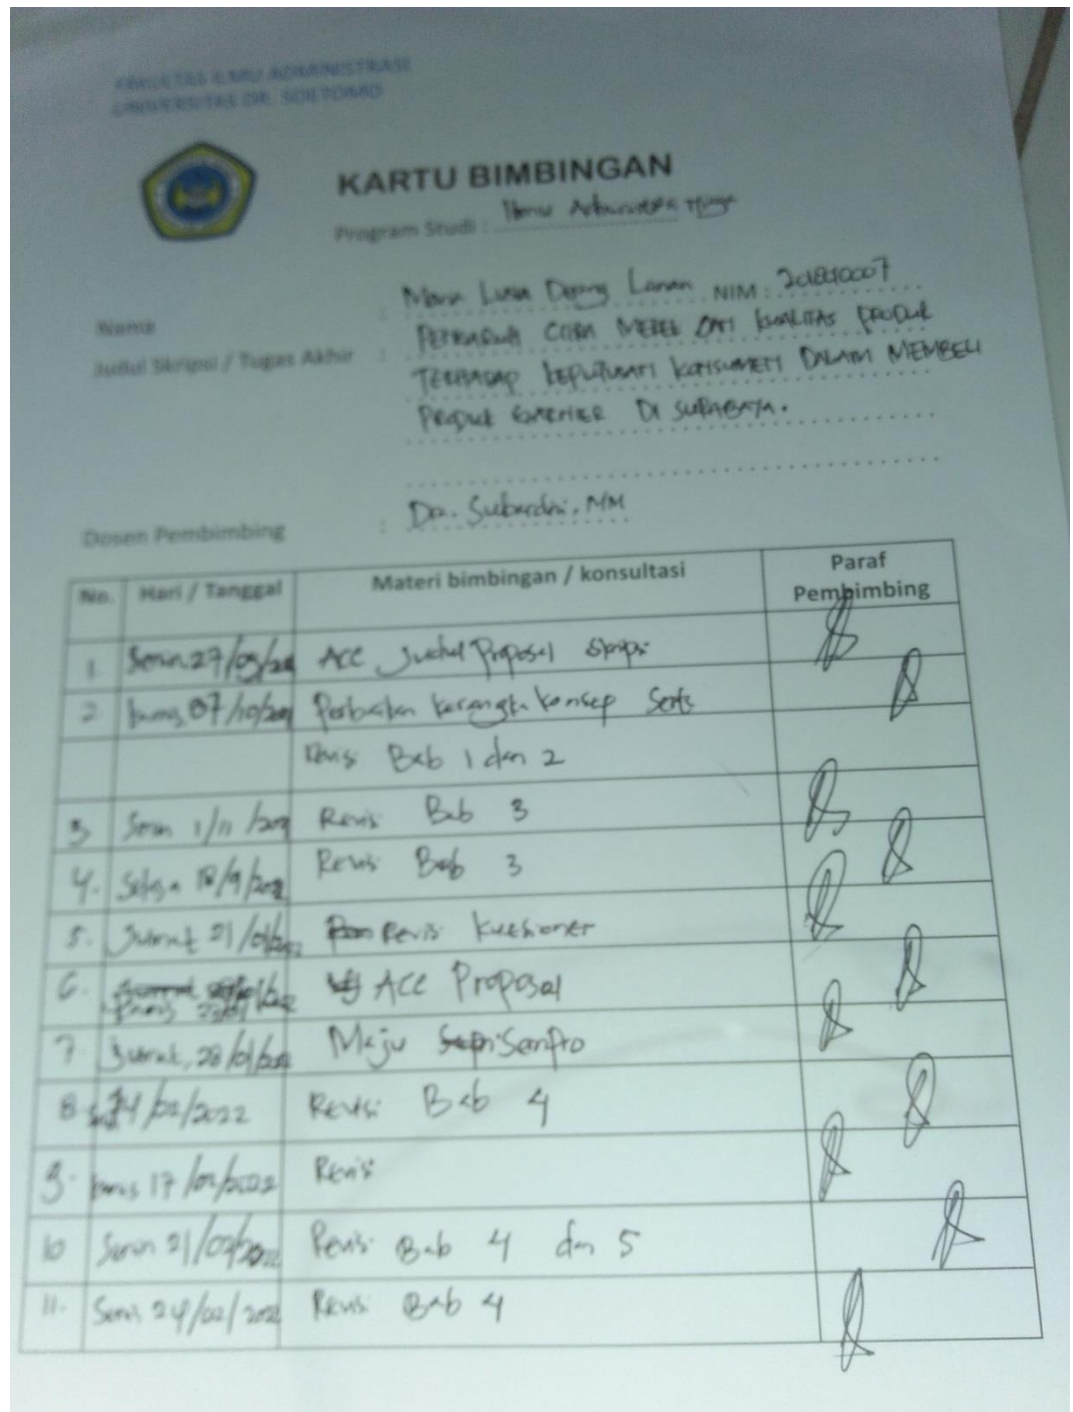 FAKULTAS ILMU ADMINISTRASI
UNIVERSITAS DR. SOETOMO
KARTU BIMBINGAN
Program Studi : Ilmu Administrasi Niaga
Nama : Maria Lusia Lanan NIM : 201810007
Judul Skripsi / Tugas Akhir : PENGARUH CITRA MEREK DAN KUALITAS PRODUK
TERHADAP KEPUTUSAN KONSUMEN DALAM MEMBELI
PRODUK DI SURABAYA.
Dosen Pembimbing : Dra. MM
No. Hari / Tanggal Materi bimbingan / konsultasi Paraf Pembimbing
1. Senin 27/09/ ACC Judul Proposal Skripsi
2 Kamis 07/10/ Perbaikan kerangka konsep Serta
Revisi Bab 1 dan 2
3. Senin 1/11/ Revisi Bab 3
4. Selasa 18/ Revisi Bab 3
5. Jumat 21/01/2022 Revisi Kuesioner
6. ACC Proposal
7. Jumat, 28/01/2022 Maju Sempro
8 14/02/2022 Revisi Bab 4
9. Kamis 17/02/2022 Revisi
10 Senin 21/02/2022 Revisi Bab 4 dan 5
11. 24/02/2022 Revisi Bab 4